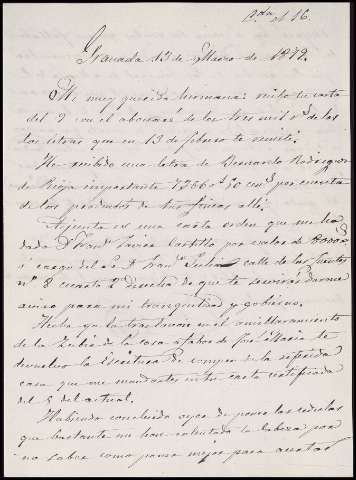 el 16.
Granada 13 de Marzo de 1879.
Mi muy querida hermana: recibo tu carta
del 9 con el abonaré de los tres mil rs de las
dos letras que en 13 de febrero te remití.
He recibido una letra de Bernardo Rodriguez
de Rioja importante 7366 rs 50 cens por cuenta
de los productos de tus fincas allí.
Adjunta es una carta orden que me ha
dado Dn Franco Javier Castillo por valor de
á cargo del Sr. D. Franco calle de las fuentes
nº 8 cuarto 2º derecha de que te servirás darme
aviso para mi tranquilidad y gobierno.
Hecha ya la traslacion en el amillaramiento
de la Zubia de la casa a favor de José Maria te
devuelvo la Escritura de compra de la referida
casa que me mandastes en tu carta certificada
del 5 del actual.
Habiendo concluido de poner las cedulas
que bastante me han calentado la cabeza por
no saber como poner mejor para